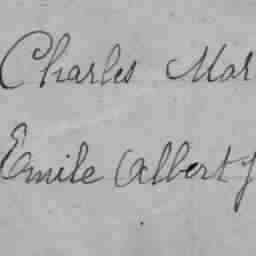 Charles Mar
Emile Albert